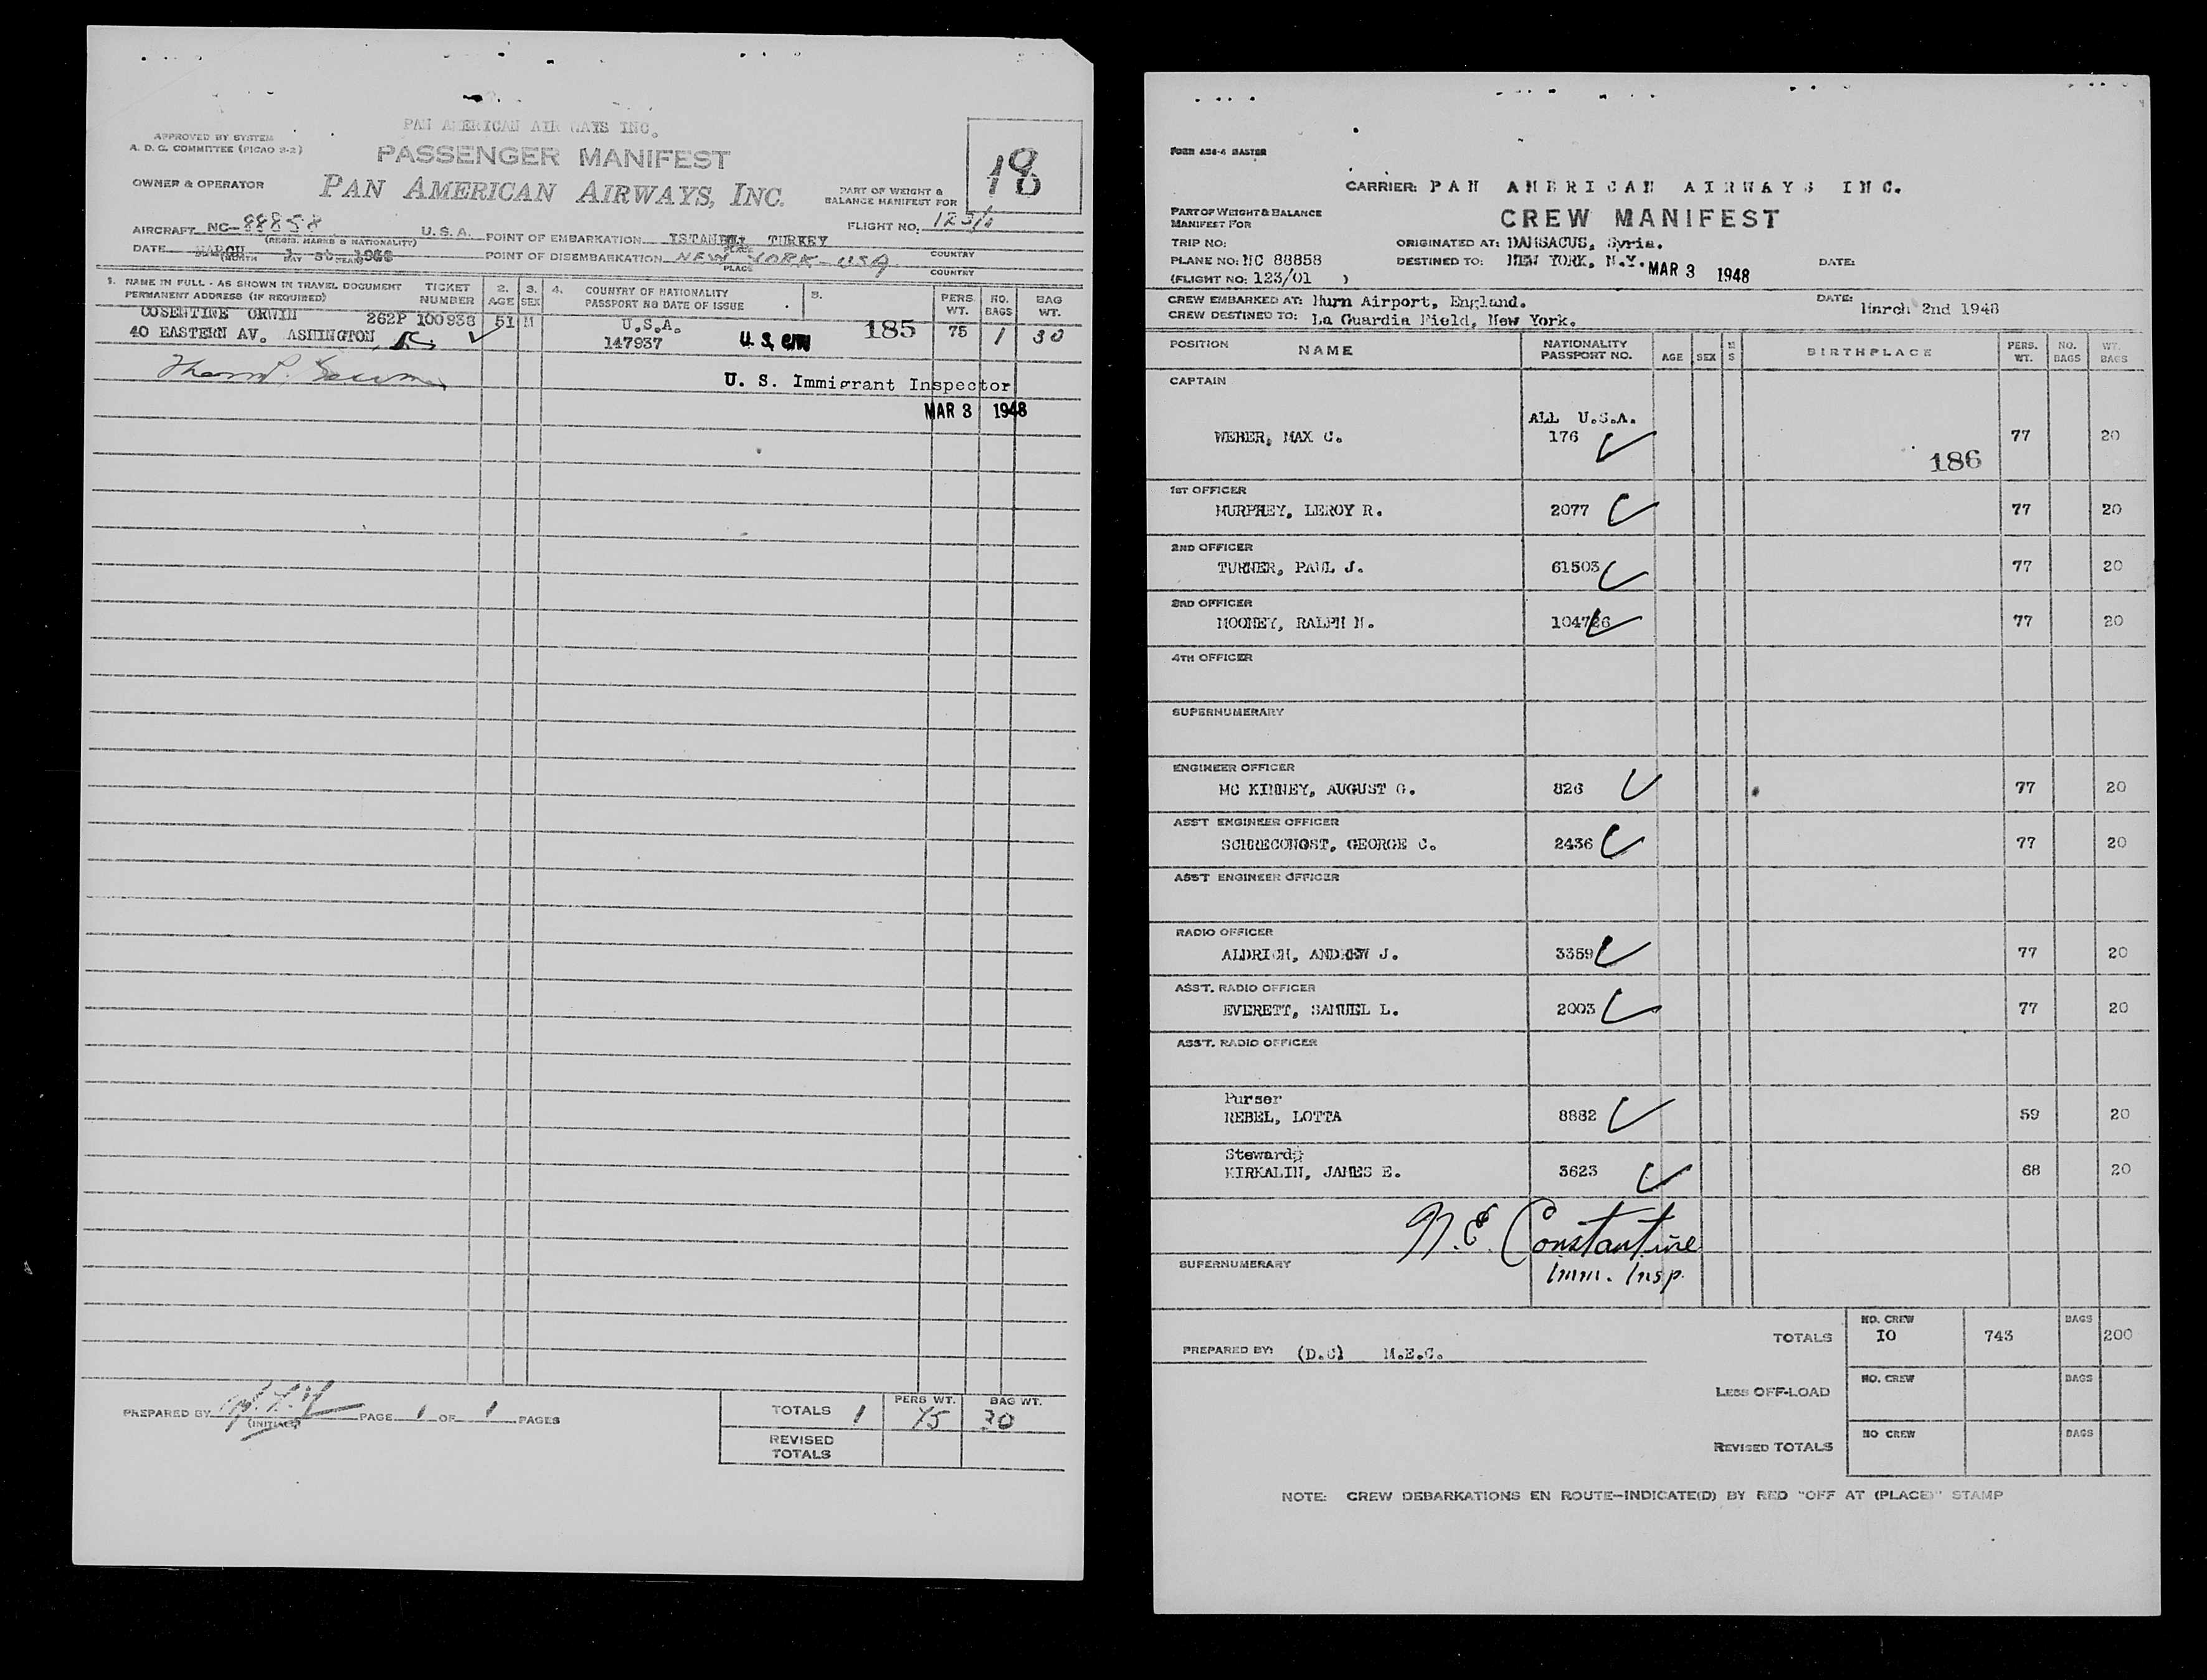 PAN AMERICAN AIRWAYS INC.
APPROVED BY SYSTEM
A. D. G. COMMITTEE (PICAO 2-2)
PASSENGER MANIFEST
18
OWNER & OPERATOR
PAN AMERICAN AIRWAYS, INC.
PART OF WEIGHT &
BALANCE MANIFEST FOR
FLIGHT NO. 123/1
AIRCRAFT NC-88858 U.S.A.
(REGIS. MARKS & NATIONALITY)
POINT OF EMBARKATION ISTANBUL TURKEY
PLACE COUNTRY
DATE MARCH 1 st
(MONTH DAY YEAR)
POINT OF DISEMBARKATION NEW YORK - USA
PLACE COUNTRY
1. NAME IN FULL - AS SHOWN IN TRAVEL DOCUMENT
PERMANENT ADDRESS (IF REQUIRED)
TICKET NUMBER
2. AGE
3. SEX
4. COUNTRY OF NATIONALITY
PASSPORT NO DATE OF ISSUE
5.
PERS. WT.
NO. BAGS
BAG WT.
COSENTINE ORWIN 262P 100938 51 M U.S.A. 185 75 1 30
40 EASTERN AV. ASHINGTON 147937
U. S. Immigrant Inspector
MAR 3 1948
PREPARED BY
(INITIALS)
PAGE 1 OF 1 PAGES
PERS WT. BAG WT.
TOTALS 1 75 30
REVISED
TOTALS
FORM ASG-4 MASTER
CARRIER: PAN AMERICAN AIRWAYS INC.
PART OF WEIGHT & BALANCE
MANIFEST FOR
CREW MANIFEST
TRIP NO: ORIGINATED AT: DAMSACUS, Syria.
PLANE NO: NC 88858 DESTINED TO: NEW YORK, N.Y. MAR 3 1948 DATE:
(FLIGHT NO: 123/01 )
CREW EMBARKED AT: Hurn Airport, England. DATE: March 2nd 1948
CREW DESTINED TO: La Guardia Field, New York.
POSITION NAME NATIONALITY PASSPORT NO. AGE SEX M S BIRTHPLACE PERS. WT. NO. BAGS WT. BAGS
CAPTAIN
ALL U.S.A.
WEBER, MAX C. 176 77 20
186
1ST OFFICER
MURPHEY, LEROY R. 2077 77 20
2ND OFFICER
TURNER, PAUL J. 61503 77 20
3RD OFFICER
MOONEY, RALPH M. 104726 77 20
4TH OFFICER
SUPERNUMERARY
ENGINEER OFFICER
MC KINNEY, AUGUST G. 826 77 20
ASS'T ENGINEER OFFICER
SCHRECONGST, GEORGE C. 2436 77 20
ASS'T ENGINEER OFFICER
RADIO OFFICER
ALDRICH, ANDREW J. 3359 77 20
ASS'T. RADIO OFFICER
EVERETT, SAMUEL L. 2003 77 20
ASS'T. RADIO OFFICER
Purser
REBEL, LOTTA 8882 59 20
Steward
KIRKALIN, JAMES E. 3623 68 20
N.E. Constantine
Imm. Insp.
SUPERNUMERARY
TOTALS NO. CREW 10 743 BAGS 200
PREPARED BY: (D.C) M.E.C.
LESS OFF-LOAD NO. CREW BAGS
REVISED TOTALS NO CREW BAGS
NOTE: CREW DEBARKATIONS EN ROUTE-INDICATE(D) BY RED "OFF AT (PLACE)" STAMP